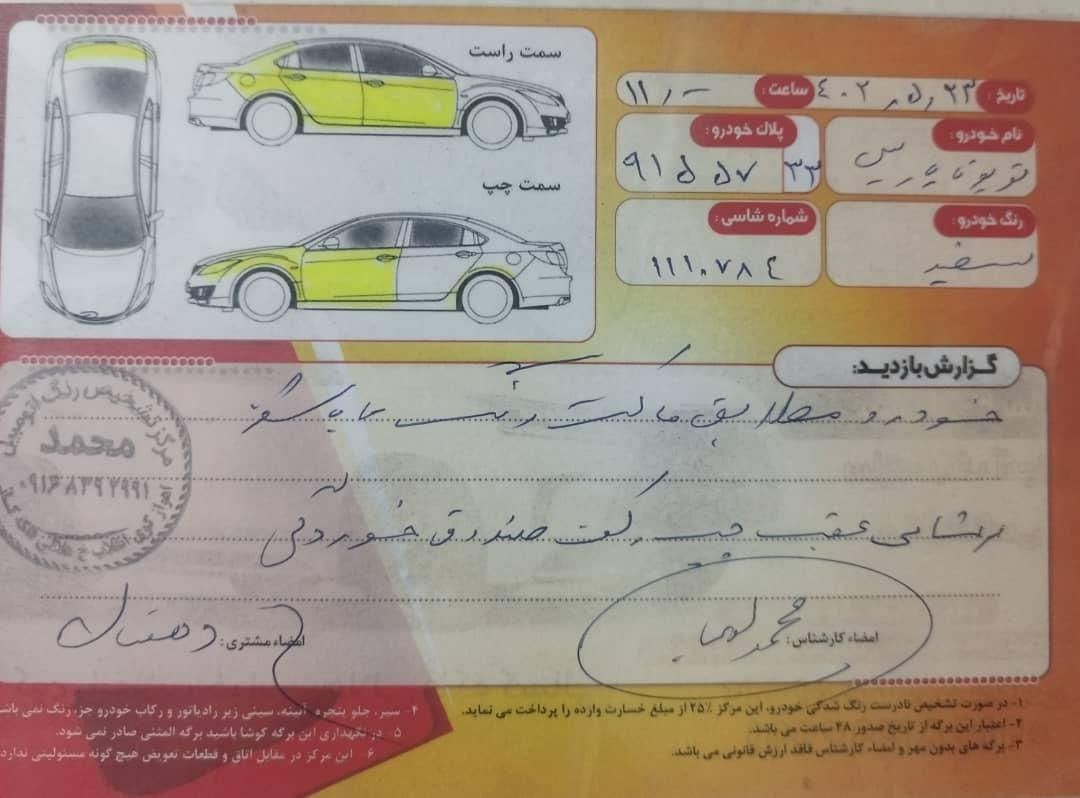 سمت راست
سمت چپ
تاریخ: ۴۰۲٫۵٫۲۳ ساعت: ۱۱٫۰۰
نام خودرو:
پلاک خودرو: ۹۱ ۵۵۷ ۳۳
رنگ خودرو: سفید
شماره شاسی: ۱۱۱۰۷۸۴
گزارش بازدید:
خودرو مطابق ماکت رنگ
عقب چپ کف صندوق خوردگی
مرکز تشخیص رنگ اتومبیل
محمد
امضاء کارشناس: محمد
امضاء مشتری:
۱- در صورت تشخیص نادرست رنگ شدگی خودرو، این مرکز ۲۵٪ از مبلغ خسارت وارده را پرداخت می نماید.
۲- اعتبار این برگه از تاریخ صدور ۴۸ ساعت می باشد.
۳- برگه های بدون مهر و امضاء کارشناس فاقد ارزش قانونی می باشد.
۴- سپر، جلو پنجره، آئینه، سینی زیر رادیاتور و رکاب خودرو جزء رنگ نمی باشد
۵ در نگهداری این برگه کوشا باشید برگه المثنی صادر نمی شود.
۶ این مرکز در مقابل اتاق و قطعات تعویض هیچ گونه مسئولیتی ندارد